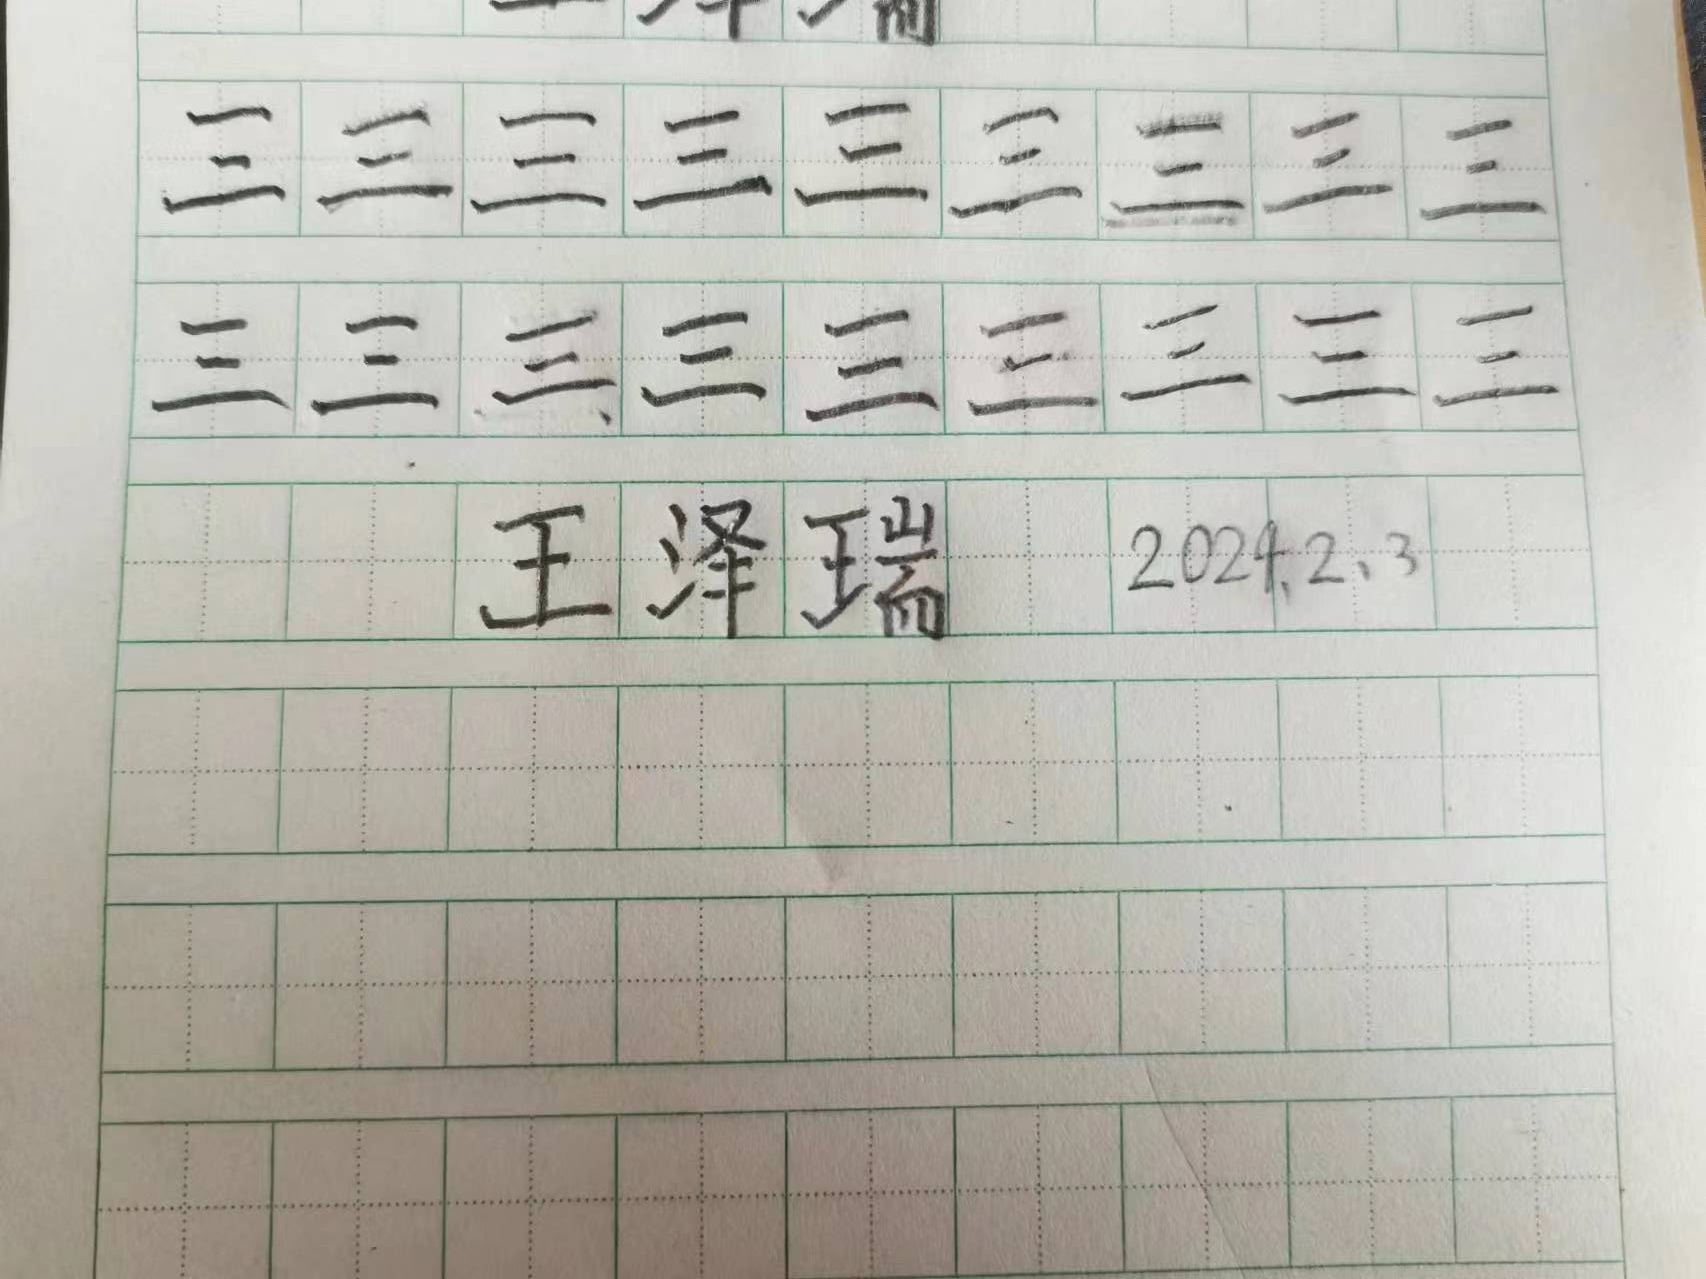 王泽瑞
三三三三三三三三三
三三三三三三三三三
王泽瑞 2024.2.3